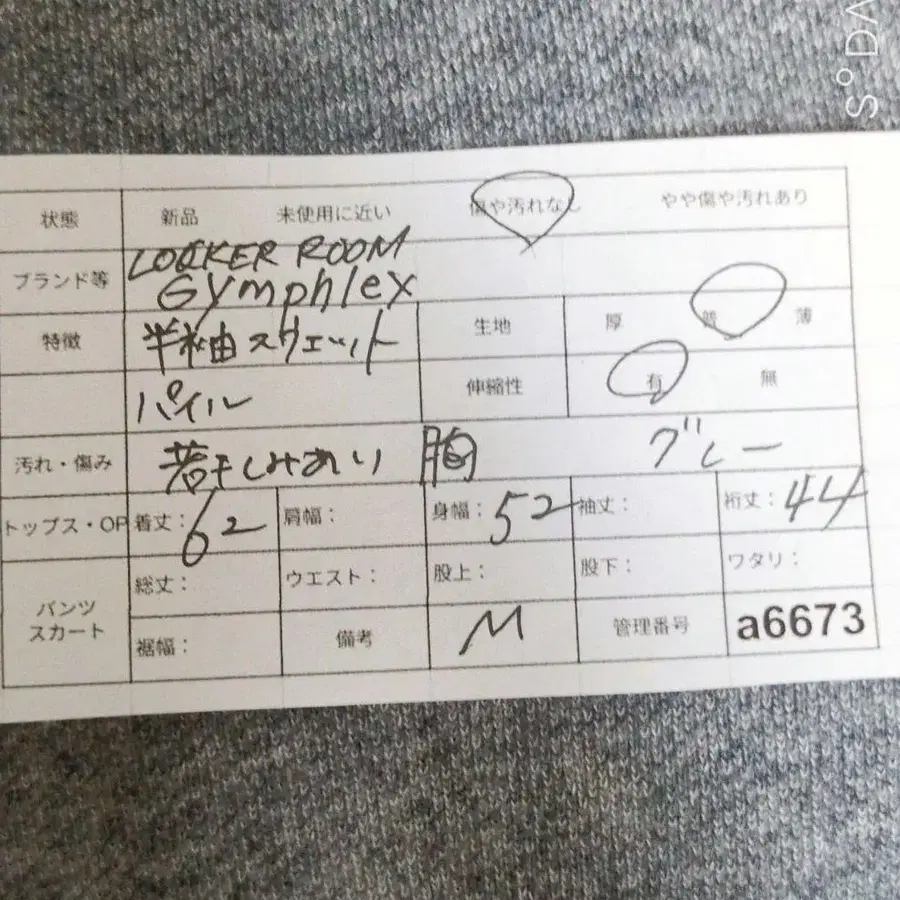 S°DA
状態 新品 未使用に近い 傷や汚れなし やや傷や汚れあり
ブランド等 LOCKER ROOM
Gymphlex
特徴 半袖スウェット 生地 厚 普 薄
パイル 伸縮性 有 無
汚れ・傷み 若干しみあり 胸 グレー
トップス・OP 着丈: 62 肩幅: 身幅: 52 袖丈: 裄丈: 44
パンツ
スカート
総丈: ウエスト: 股上: 股下: ワタリ:
裾幅: 備考 M 管理番号 a6673